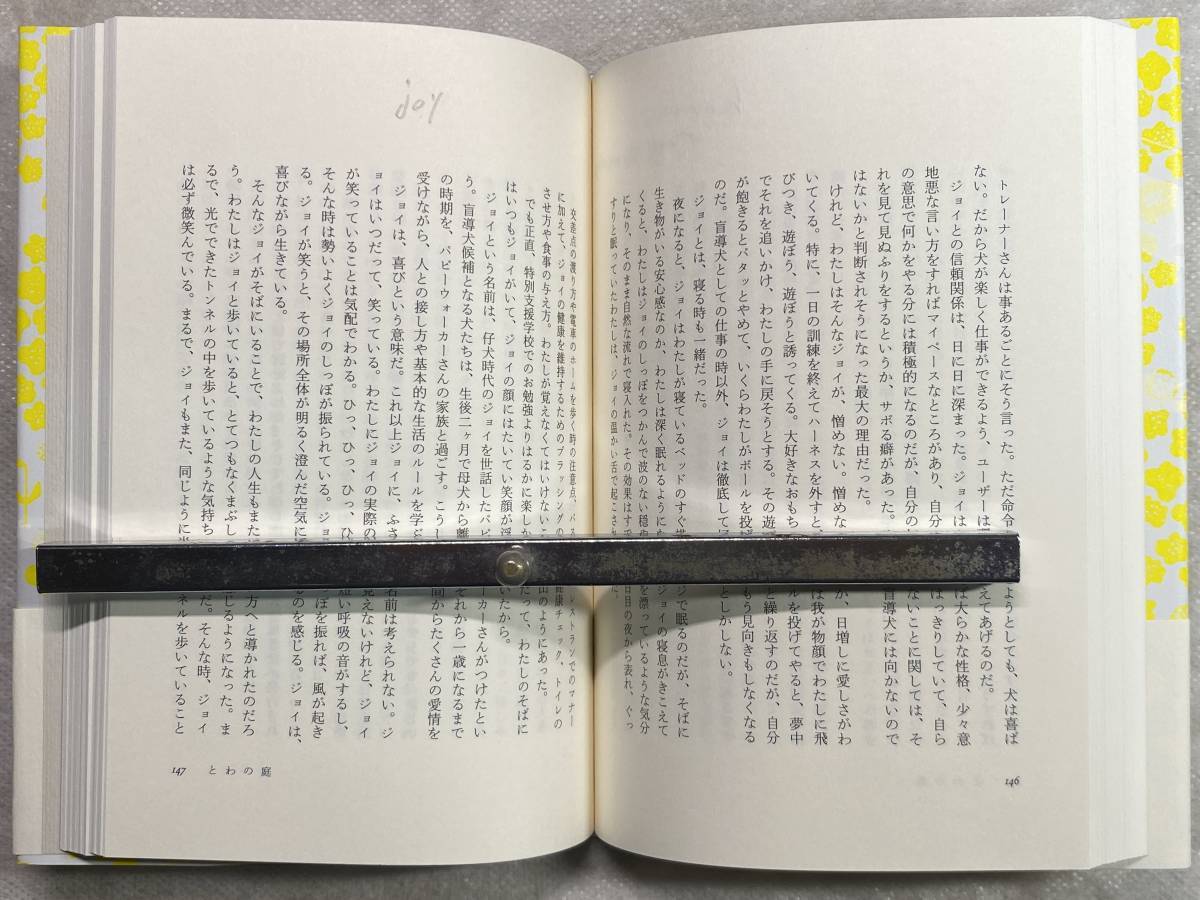 トレーナーさんは事あるごとにそう言った。ただ命令 ようとしても、犬は喜ば
ない。だから犬が楽しく仕事ができるよう、ユーザーは えてあげるのだ。
ジョイとの信頼関係は、日に日に深まった。ジョイは は大らかな性格、少々意
地悪な言い方をすればマイペースなところがあり、自分 はっきりしていて、自ら
の意思で何かをやる分には積極的になるのだが、自分の ないことに関しては、そ
れを見て見ぬふりをするというか、サボる癖があった。 盲導犬には向かないので
はないかと判断されそうになった最大の理由だった。
けれど、わたしはそんなジョイが、憎めない。憎めな か、日増しに愛しさがわ
いてくる。特に、一日の訓練を終えてハーネスを外すと、 は我が物顔でわたしに飛
びつき、遊ぼう、遊ぼうと誘ってくる。大好きなおもち ルを投げてやると、夢中
でそれを追いかけ、わたしの手に戻そうとする。その遊 と繰り返すのだが、自分
が飽きるとパタッとやめて、いくらわたしがボールを投げ もう見向きもしなくなる
のだ。盲導犬としての仕事の時以外、ジョイは徹底して としかしない。
ジョイとは、寝る時も一緒だった。
夜になると、ジョイはわたしが寝ているベッドのすぐ ジで眠るのだが、そばに
生き物がいる安心感なのか、わたしは深く眠れるように ジョイの寝息がきこえて
くると、わたしはジョイのしっぽをつかんで波のない穏 を漂っているような気分
になり、そのまま自然な流れで寝入れた。その効果はす 日目の夜から表れ、ぐっ
すりと眠っていたわたしは、ジョイの温かい舌で起こさ た。
146
joy
交差点の渡り方や電車のホームを歩く時の注意点、バス レストランでのマナー
に加えて、ジョイの健康を維持するためのブラッシング 健康チェック、トイレの
させ方や食事の与え方。わたしが覚えなくてはいけない 山のようにあった。
でも正直、特別支援学校でのお勉強よりはるかに楽しか だって、わたしのそばに
はいつもジョイがいて、ジョイの顔にはたいてい笑顔が浮 いたから。
ジョイという名前は、仔犬時代のジョイを世話したパピ ーカーさんがつけたとい
う。盲導犬候補となる犬たちは、生後二ヶ月で母犬から離 それから一歳になるまで
の時期を、パピーウォーカーさんの家族と過ごす。こうし 間からたくさんの愛情を
受けながら、人との接し方や基本的な生活のルールを学
ジョイは、喜びという意味だ。これ以上ジョイに、ふさ 名前は考えられない。ジ
ョイはいつだって、笑っている。わたしにジョイの実際の 見えないけれど、ジョイ
が笑っていることは気配でわかる。ひっ、ひっ、ひっ、ひ 短い呼吸の音がするし、
そんな時は勢いよくジョイのしっぽが振られている。ジョ ぽを振れば、風が起き
る。ジョイが笑うと、その場所全体が明るく澄んだ空気に るのを感じる。ジョイは、
喜びながら生きている。
そんなジョイがそばにいることで、わたしの人生もまた 方へと導かれたのだろ
う。わたしはジョイと歩いていると、とてつもなくまぶし じるようになった。ま
るで、光でできたトンネルの中を歩いているような気持ち だ。そんな時、ジョイ
は必ず微笑んでいる。まるで、ジョイもまた、同じように ンネルを歩いていること
147 とわの庭